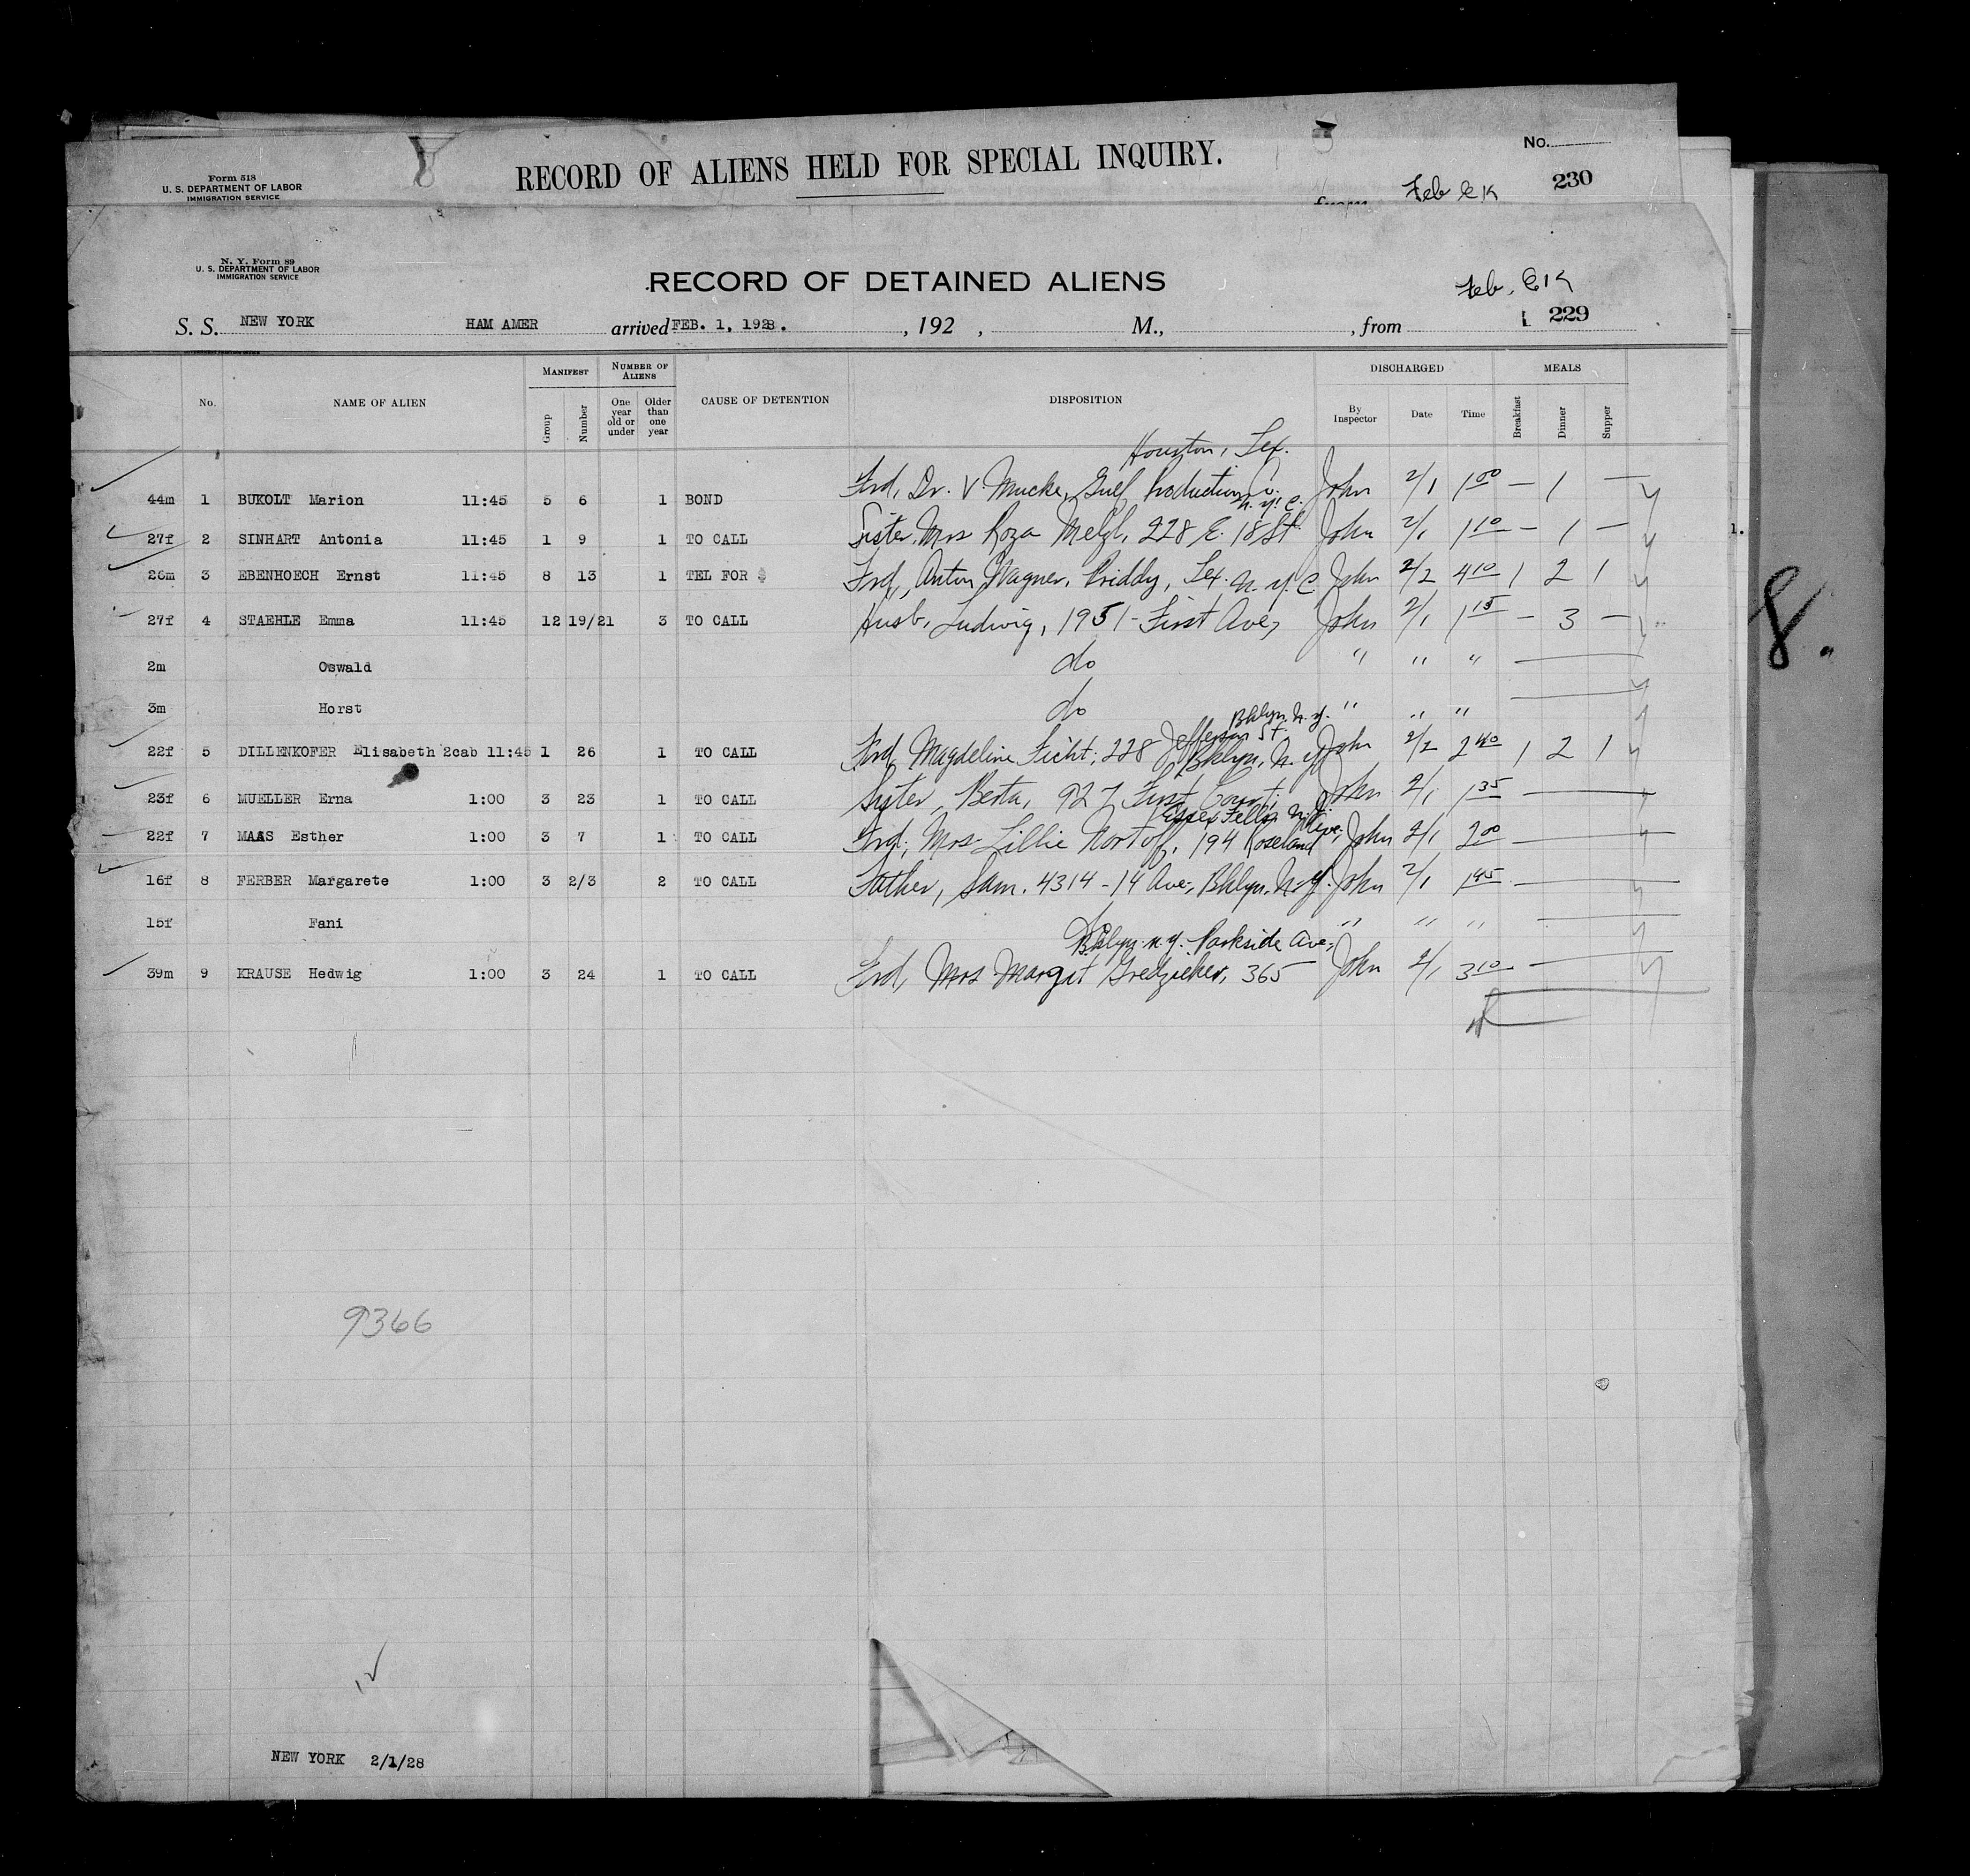 Form 518
U. S. DEPARTMENT OF LABOR
IMMIGRATION SERVICE
RECORD OF ALIENS HELD FOR SPECIAL INQUIRY.
No.
Feb
230
from
N. Y. Form 89
U. S. DEPARTMENT OF LABOR
IMMIGRATION SERVICE
RECORD OF DETAINED ALIENS
Feb.
229
S. S. NEW YORK HAM AMER arrived FEB. 1, 1928. , 192 , M., , from
No. NAME OF ALIEN MANIFEST Group Number NUMBER OF ALIENS One year old or under Older than one year CAUSE OF DETENTION DISPOSITION DISCHARGED By Inspector Date Time MEALS Breakfast Dinner Supper
Houston, Tex.
44m 1 BUKOLT Marion 11:45 5 6 1 BOND Frd, Dr. V. Mucke, Gulf Production Co. John 2/1 1 00 — 1 —
N.Y.C.
27f 2 SINHART Antonia 11:45 1 9 1 TO CALL Sister, Mrs Roza Melzl, 228 E. 18 St John 2/1 1 10 — 1 —
26m 3 EBENHOECH Ernst 11:45 8 13 1 TEL FOR Frd, Anton Wagner, Priddy, Tex. John 2/2 4 10 1 2 1
N.Y.C.
27f 4 STAEHLE Emma 11:45 12 19/21 3 TO CALL Husb, Ludwig, 1951 - First Ave, John 2/1 1 15 — 3 —
2m Oswald do " " "
3m Horst do " " "
Bklyn. N.Y.
Jefferson St.
22f 5 DILLENKOFER Elisabeth 2cab 11:45 1 26 1 TO CALL Frd, Magdeline Ficht, 228 John 2/2 2 40 1 2 1
Bklyn, N.Y.
23f 6 MUELLER Erna 1:00 3 23 1 TO CALL Sister, Berta, 927 First Court, John 2/1 1 35
Essex Fells, N.J.
22f 7 MAAS Esther 1:00 3 7 1 TO CALL Frd, Mrs. Lillie Nortoff, 194 Roseland Ave, John 2/1 2 00
16f 8 FERBER Margarete 1:00 3 2/3 2 TO CALL Father, Sam. 4314 - 14 Ave, Bklyn, N.Y. John 2/1 1 45
15f Fani do " " "
Bklyn. N.Y. Parkside Ave,
39m 9 KRAUSE Hedwig 1:00 3 24 1 TO CALL Frd, Mrs Margit 365 John 2/1 3 10
8.
9366
NEW YORK 2/1/28